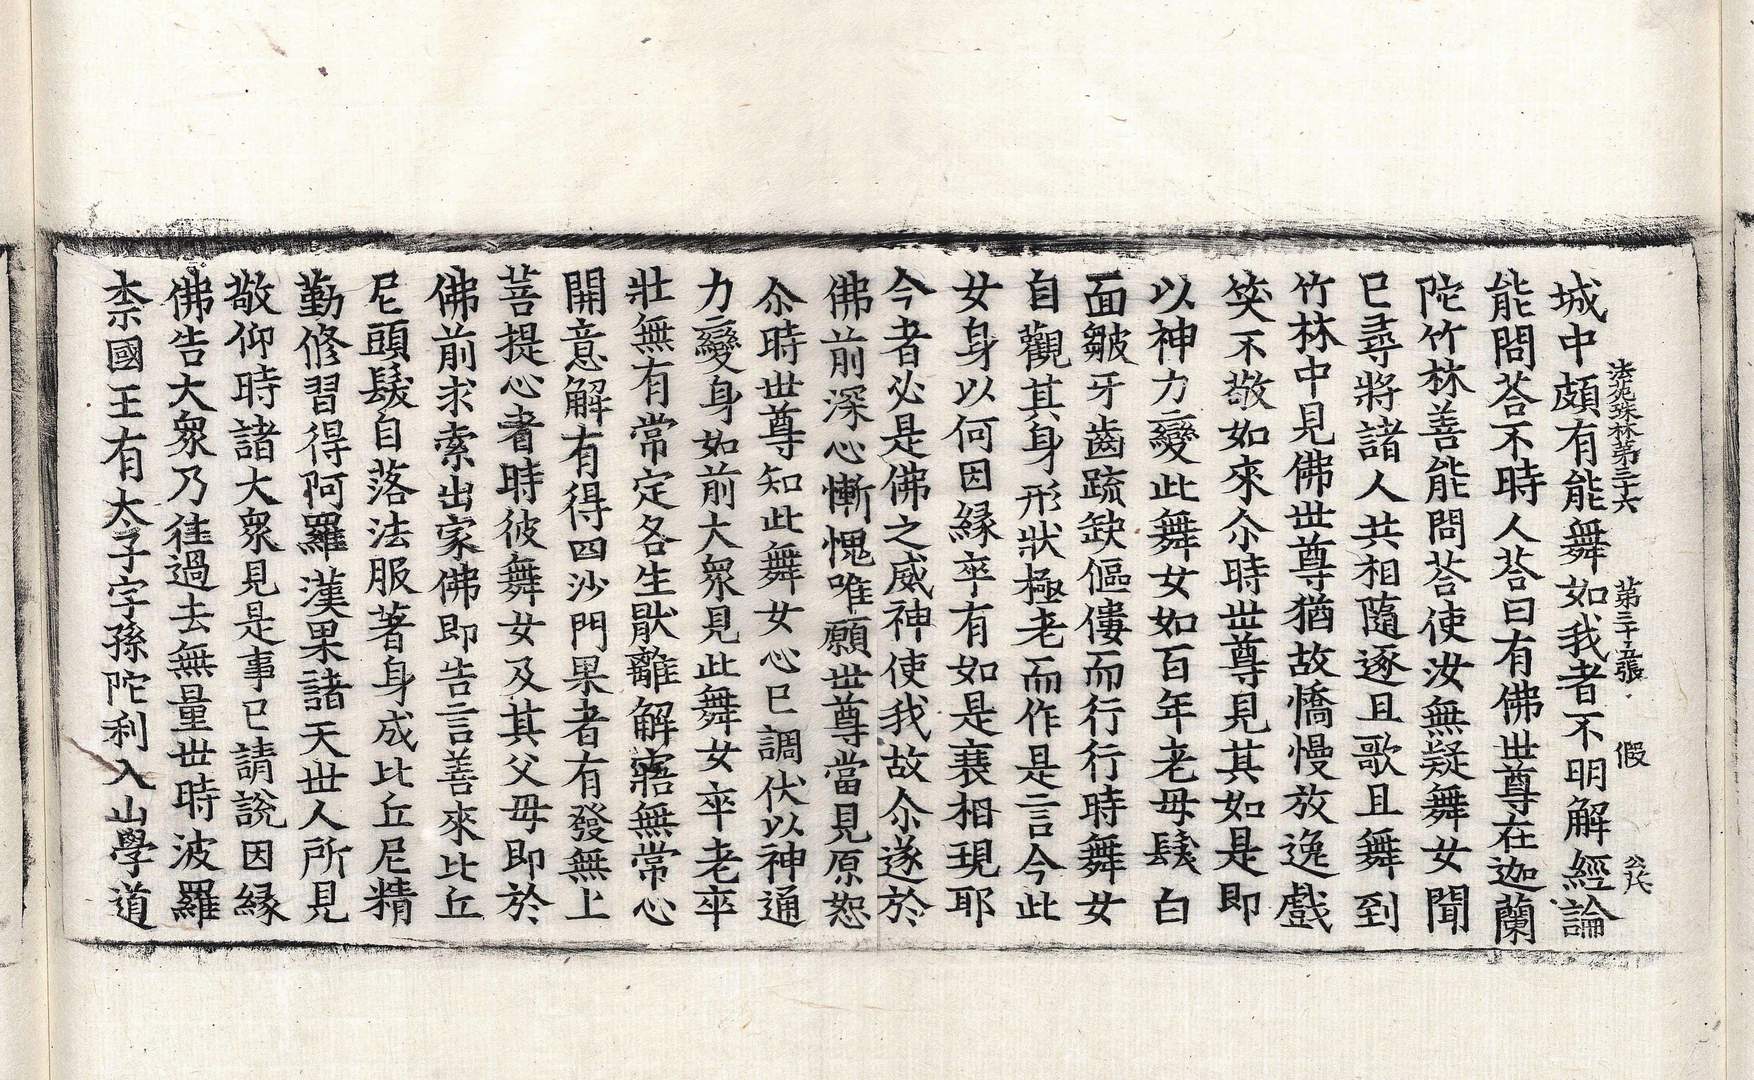 法苑珠林第三十六 第三十五張 假 公氏
城中頗有能舞如我者不明解經論
能問荅不時人荅曰有佛世尊在迦蘭
陁竹林善能問荅使汝無疑舞女聞
已尋將諸人共相隨逐且歌且舞到
竹林中見佛世尊猶故憍慢放逸戲
笑不敬如來尒時世尊見其如是即
以神力變此舞女如百年老母髮白
面皺牙齒疏缺傴僂而行行時舞女
自觀其身形狀極老而作是言今此
女身以何因緣卒有如是衰相現耶
今者必是佛之威神使我故尒遂於
佛前深心慚愧唯願世尊當見原恕
尒時世尊知此舞女心已調伏以神通
力變身如前大衆見此舞女卒老卒
壯無有常定各生猒離解寤無常心
開意解有得四沙門果者有發無上
菩提心者時彼舞女及其父母即於
佛前求索出家佛即告言善來比丘
尼頭髮自落法服著身成比丘尼精
勤修習得阿羅漢果諸天世人所見
敬仰時諸大衆見是事已請說因緣
佛告大衆乃往過去無量世時波羅
柰國王有太子字孫陁利入山學道